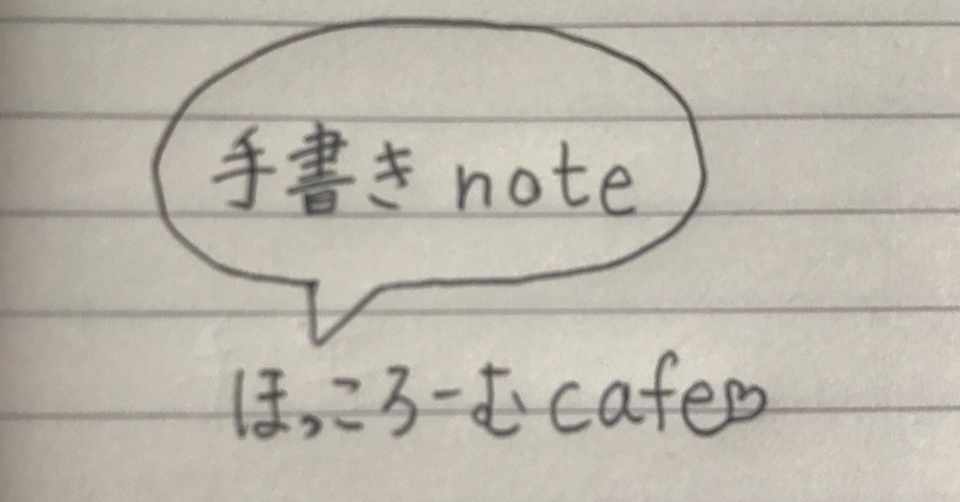 手書き note
ほっころーむcafe♡